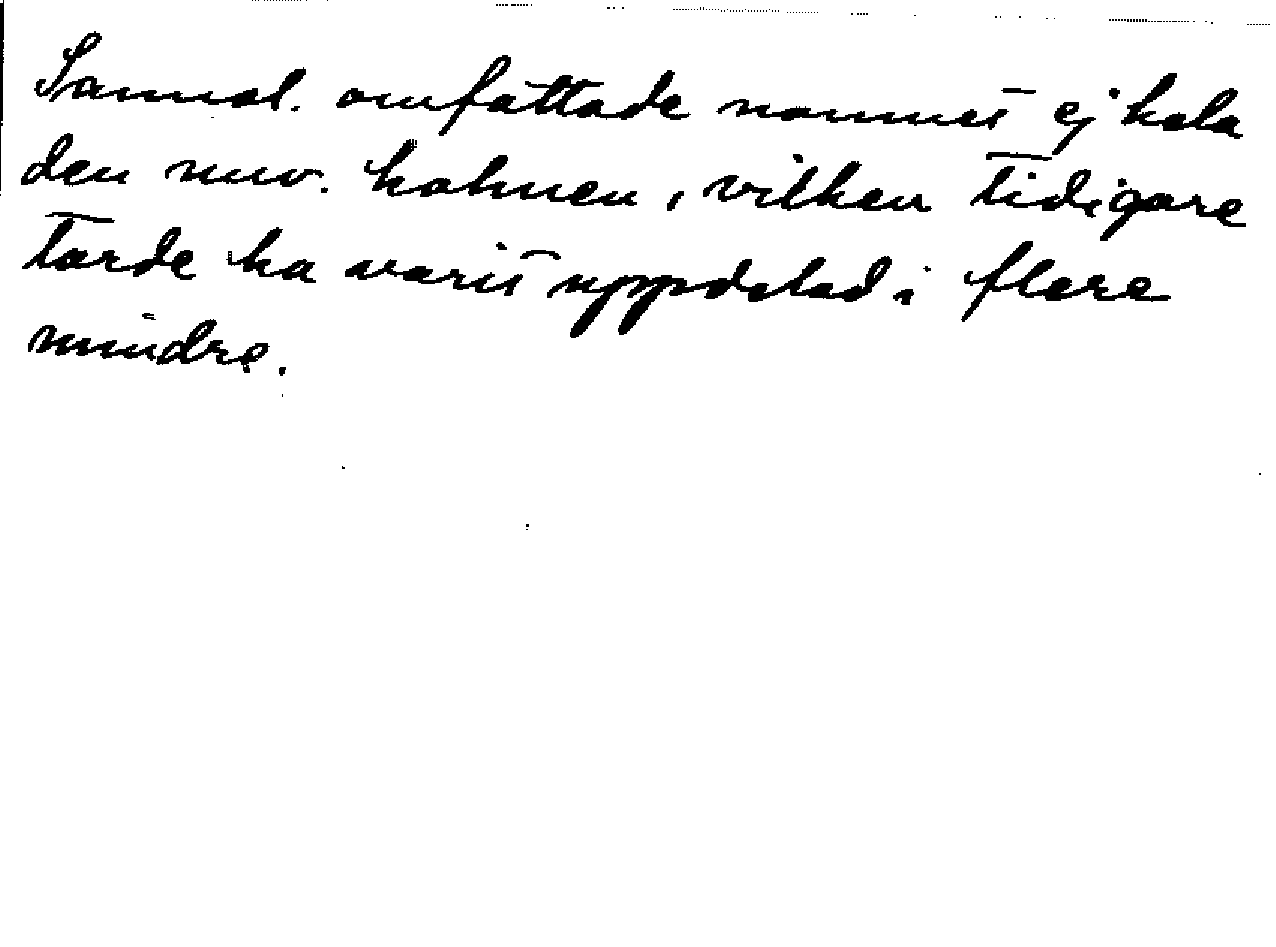 Sannol. omfattade namnet ej hela
den nuv. holmen, vilken tidigare
torde ha varit uppdelad i flere
mindre.